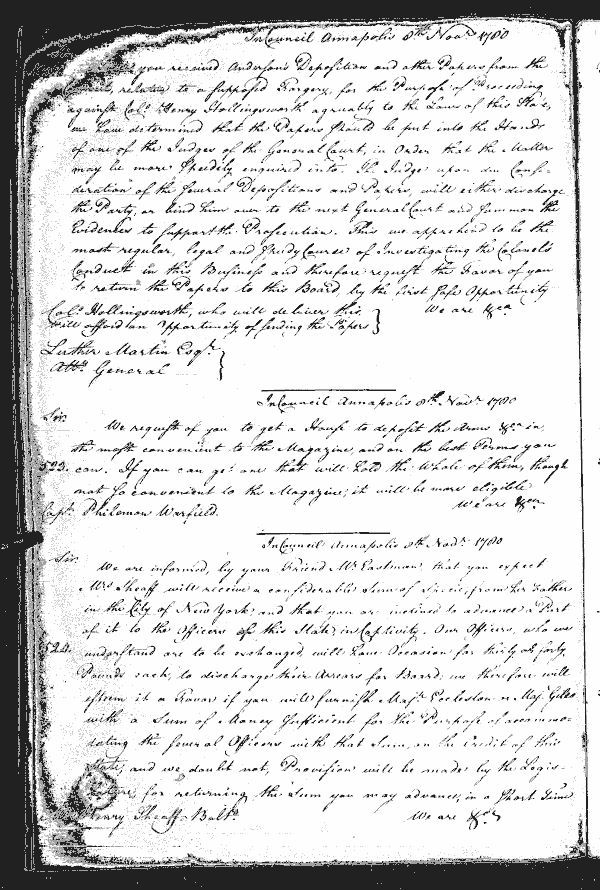 In Council Annapolis 8th Novr 1780
you received Anderson's Deposition and other Papers from the
relative to a supposed Forgery, for the Purpose of Proceeding
against Colo Henry Hollingsworth agreeably to the Laws of this State,
we have determined that the Papers should be put into the Hands
of one of the Judges of the General Court, in Order that the Matter
may be more speedily enquired into. The Judge upon due Consi-
deration of the several Depositions and Papers, will either discharge
the Party, or bind him over to the next General Court and Summon the
Evidences to support the Prosecution. This we apprehend to be the
most regular, legal and speedy Course of Investigating the Colonel's
Conduct in this Business and therefore request the Favor of you
to return the Papers to this Board, by the first safe Opportunity
Colo Hollingsworth, who will deliver this, We are &ca
will afford an Opportunity of sending the Papers
Luther Martin Esqr
Atty General
In Council Annapolis 8th Novr 1780
Sir.
We request of you to get a House to deposit the Arms &ca in,
the most convenient to the Magazine, and on the best Terms you
523. can. If you can get one that will hold the Whole of them, though
not so convenient to the Magazine; it will be more eligible
We are &ca
Capt. Philemon Warfield.
In Council Annapolis 8th Novr 1780
Sir.
We are informed, by your Friend Mr Eastman, that you expect
Mrs Sheaff will receive a considerable Sum of Specie, from her Father
in the City of New York, and that you are inclined to advance a Part
of it to the Officers of this State, in Captivity. Our Officers, who we
524. understand are to be exchanged, will have Occasion for thirty or forty
Pounds each, to discharge their Arrears for Board; we therefore will
esteem it a Favor if you will furnish Majr Eccleston or Maj. Giles
with a Sum of Money sufficient for the Purpose of accommo-
dating the several Officers with that Sum, on the Credit of this
State, and we doubt not, Provision will be made by the Legis-
lature, for returning the Sum you may advance, in a short Time
We are &ca
Henry Sheaff - Balto